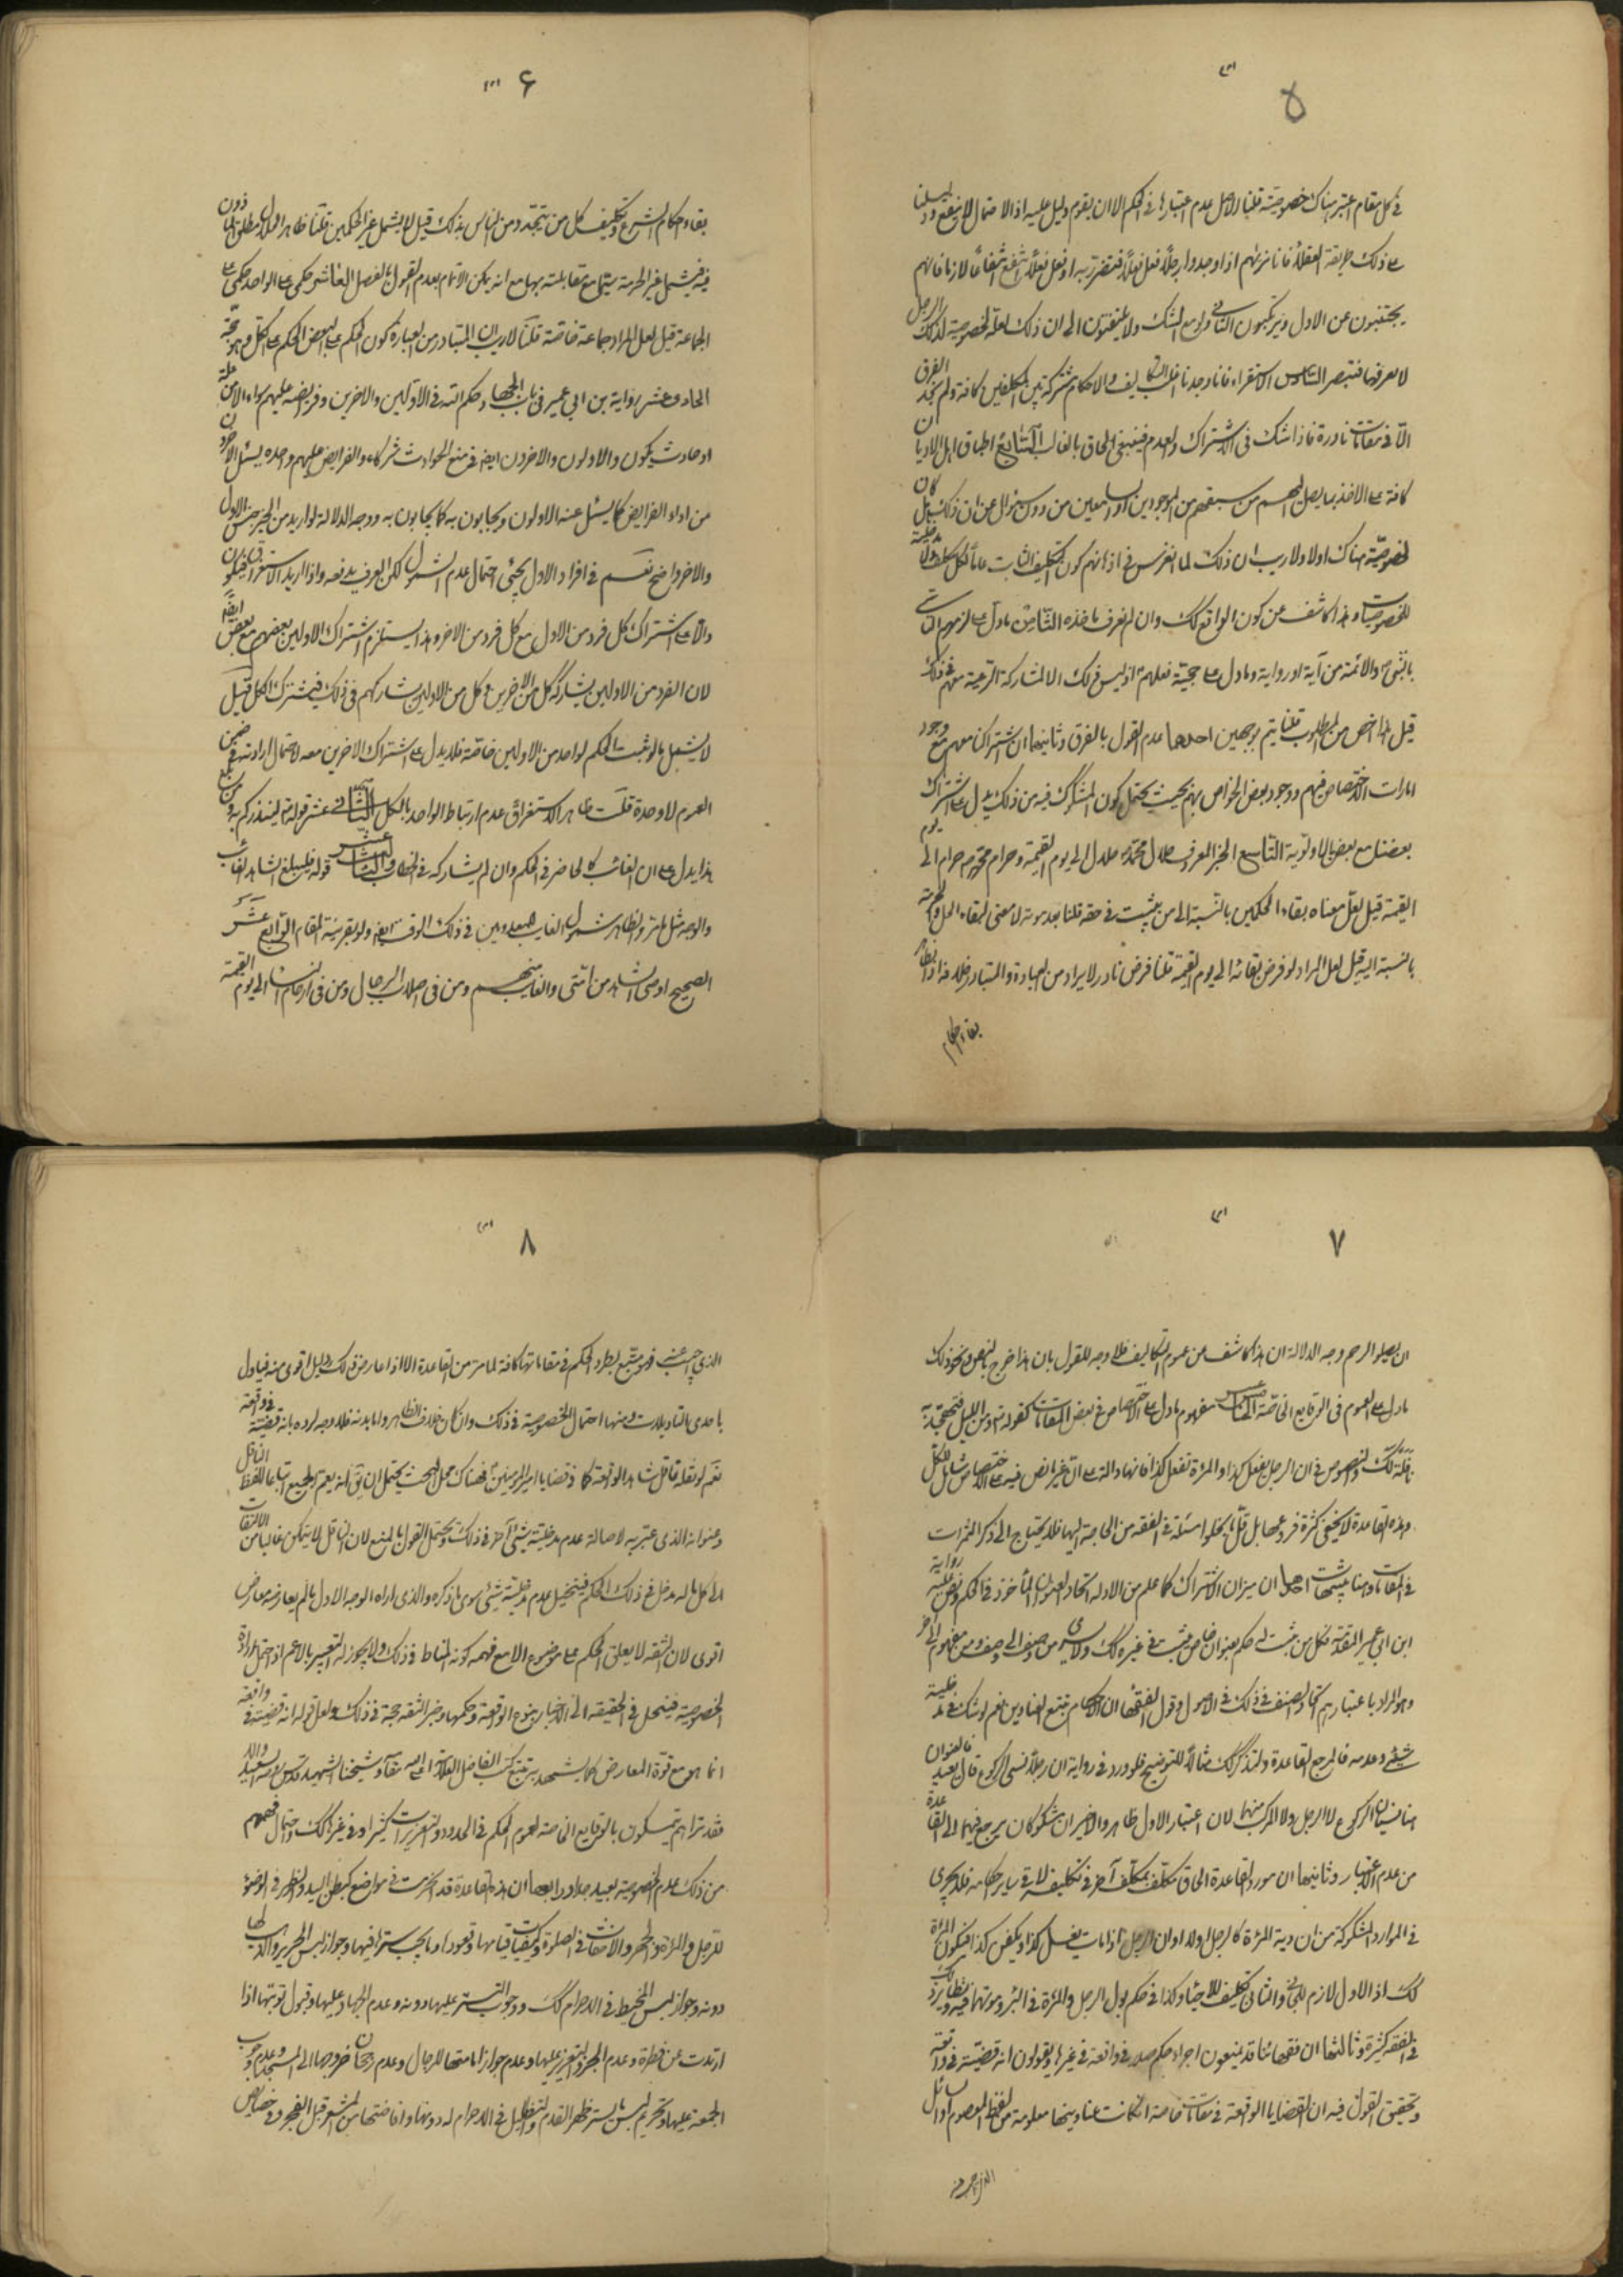 ۵
في كل مقام اعتبر هناك خصوصية قلنا الاصل عدم اعتبارها في الحكم الا ان يقوم دليل عليه اذ الاحتمال لا يرفع
على ذلك طريقة العقلاء فانا نريهم اذا وجدوا رجلا فعل فعلا فتضرر به او فعل فعلا انتفع
يجتنبون عن الاول ويرتكبون الثاني ولو مع الشك ولا يلتفتون الى ان ذلك لعله لخصوصية لذلك الرجل
لا نعرفها فتبصر السادس الاستقراء فانا وجدنا اغلب التكاليف والاحكام مشتركة بين المكلفين كافة ولم نجد الفرق
الا في مقامات نادرة فاذا شك في الاشتراك والعدم فينبغي الحاق بالغالب السابع اطباق اهل الاديان
كافة على الاخذ بما يصل اليهم من سبقهم من الموجودين او السامعين من دون سؤال عن ان ذلك كان
لخصوصية هناك اولا ولا ريب ان ذلك لما انغرس في اذهانهم كون التكليف الثابت
للخصوصيات وهذا كاشف عن كون الواقع كك وان لم نعرف ماخذه الثامن ما دل على لزوم التاسي
بالنبي والائمة من آية او رواية وما دل على حجية فعلهم اذ ليس ذلك الا لمشاركة الرعية معهم في ذلك
قيل هذا اخص من المطلوب قلنا يتم بوجهين احدهما عدم القول بالفرق وثانيهما ان اشتراكنا معهم مع وجود
امارات الاختصاص فيهم ووجود بعض الخواص بهم بحيث يحتمل كون المشكوك فيه من ذلك يدل على اشتراك
بعضنا مع بعض بالاولوية التاسع الخبر المعروف حلال محمد حلال الى يوم القيمة وحرام محمد حرام الى يوم
القيمة قيل لعل معناه بقاء الحكمين بالنسبة الى من يثبت في حقه قلنا بعد موته لا معنى لبقاء الحل والحرمة
بالنسبة اليه قيل لعل المراد لو فرض بقائه الى يوم القيمة قلنا فرض نادر لا يراد من العبادة والمتبادر خلافه
بقاء احكام
۶
بقاء احكام الشرع وتكليف كل من يتجدد من الناس بذلك قيل لا يشمل غير الحكمين قلنا ظاهر الحلال مطلق الماذون
فيه فيشمل غير الحرمة سيما مع مقابلته بها مع انه يمكن الاتمام بعدم القول بالفصل العاشر حكمي على الواحد حكمي على
الجماعة قيل لعل المراد جماعة خاصة قلنا لا ريب ان المتبادر من العبارة كون الحكم على البعض الحكم على الكل وهو حجة
الحادي عشر رواية بن ابي عمير في باب الجهاد حكم الله في الاولين والاخرين وفرائضه عليهم سواء الا من علة
او حادث يكون والاولون والاخرون ايضا في منع الحوادث شركاء والفرايض عليهم واحدة يسئل الاخرون
من اداء الفرايض كما يسئل عنه الاولون ويحاسبون به كما يحاسبون به ووجه الدلالة لو اريد من الخبر جنس الاول
والاخر واضح نعم في افراد الاول يجئ احتمال عدم الشمول لكن العرف يدفعه واذا اريد الاستغراق فيكون
دالا على اشتراك كل فرد من الاول مع كل فرد من الاخر وهذا يستلزم اشتراك الاولين بعضهم مع بعض ايضا
لان الفرد من الاولين يشاركه كل من الاخرين وكل من الاولين يشاركهم في ذلك فيشترك الكل قيل
لا يشمل ما لو ثبت الحكم لواحد من الاولين خاصة فلا يدل على اشتراك الاخرين معه لاحتمال ارادته في ضمن
العموم لا وحده قلت ظاهر الاستغراق عدم ارتباط الواحد بالكل الثاني عشر قوله تعالى لينذركم به ومن بلغ
هذا يدل على ان الغائب كالحاضر في الحكم وان لم يشاركه في الخطاب الثالث عشر قوله فليبلغ الشاهد الغائب
والوجه مثل ما مر والظاهر شمول الغائب للمعدومين في ذلك الوقت ايضا ولو بقرينة المقام الرابع عشر
الصحيح اوصى الشاهد من امتي والغائب منهم ومن في اصلاب الرجال ومن في ارحام النساء الى يوم القيمة
۷
ان يصلوا الرحم وجه الدلالة ان هذا كاشف عن عموم التكاليف فلا وجه للقول بان هذا خرج بالنص ونحو ذلك
ما دل على العموم في الوقايع الخاصة الخامس عشر مفهوم ما دل على الاختصاص في بعض المقامات كقوله تعالى ومن الليل فتهجد به
نافلة لك والنصوص في ان الرجل يفعل كذا والمراة تفعل كذا فانها دالة على ان غير ما نص فيه على الاختصاص شامل للكل
وهذه القاعدة لا يخفى كثرة فروعها بل قل ما يخلوا مسئلة في الفقه من الحاجة اليها فلا يحتاج الى ذكر الثمرات
في المقامات وهنا مباحث احدها ان ميزان الاشتراك كما علم من الادلة اتحاد العنوان الماخوذ في الحكم ونص عليه رواية
ابن ابي عمير المتقدمة فكل من ثبت له حكم بعنوان خاص يثبت في غيره كك ولا يسري من وصف الى وصف ومن مفهوم الى اخر
وهو المراد باعتبارهم اتحاد الصنف في ذلك في الاصول وقول الفقهاء ان الاحكام يتبع العناوين نعم لو شك في مدخلية
شيئ وعدمه فالمرجع القاعدة ولنذكر لك مثالا للتوضيح فلو ورد في رواية ان رجلا نسي الركوع قال يعيد فالعنوان
هنا نسيان الركوع لا الرجل ولا المركب منهما لان اعتبار الاول ظاهر والاخير ان مشكوكان يرجع فيهما الى القاعدة
من عدم الاعتبار وثانيها ان مورد القاعدة الحاق مكلف بمكلف آخر في تكليفه لا في ساير احكامه فلا يجري
في الموارد المشكوكة من ان دية المراة كالرجل او لا او ان الرجل اذا مات يغسل كذا ويكفن كذا فيكون المراة
كك اذ الاول لازم للجاني والثاني تكليف للاحياء وكذا في حكم بول الرجل والمراة في البئر وموتهما فيه ونظائر ذلك
في الفقه كثيرة وثالثها ان فقهائنا قد يمنعون اجراء حكم صدر في واقعة في غيرها ويقولون انه قضية في واقعة
وتحقيق القول فيه ان القضايا الواقعة في مقامات خاصة ان كانت عناوينها معلومة من لفظ المعصوم او السائل
۸
الذي اجيب عنه فهو متبع يطرد الحكم في مقاماتها كافة لما مر من القاعدة الا اذا عارض ذلك دليل اقوى منه فياول
باحدى التاويلات ومنها احتمال الخصوصية في ذلك وان كان خلاف الظاهر واما بدونه فلا وجه لرده بانه قضية في واقعة
نعم لو نقله ناقل شاهد الواقعة كما في قضايا امير المؤمنين فهناك محل البحث يحتمل ان يق انه يعم الجميع اتباعا للفظ الناقل
وعنوانه الذي عبر به لاصالة عدم مدخلية شيئ آخر في ذلك ويحتمل القول بالمنع لان الناقل لا يتمكن غالبا من الالتفات
الى كل ما له مدخل في ذلك الحكم فيتخيل عدم مدخلية شيئ سوى ما ذكره والذي اراه الوجه الاول ما لم يعارضه معارض
اقوى لان الثقة لا يعلق الحكم على موضوع الا مع فهمه كونه المناط في ذلك ولا يجوز له التعبير بالاعم اذ احتمل ارادة
الخصوصية فينحل في الحقيقة الى الاخبار بنوع الواقعة وحكمها وخبر الثقة حجة في ذلك ولعل قولهم انه قضية في واقعة
انما هو مع قوة المعارض كما يشهد به تتبع كتب الفاضل العلامة اعلى الله مقامه وشيخنا الشهيد قدس الله روحه السعيد
فقد تراهم يتمسكون بالوقايع الخاصة لعموم الحكم في الحدود والتعزيرات كثيرا وفي غير ذلك واحتمال فهمهم
من ذلك عدم الخصوصية بعيد جدا ورابعها ان هذه القاعدة قد انخرمت في مواضع كبطن اليد والظهر في الوضوء
للرجل والمراة والجهر والاخفات في الصلوة وكيفيات قيامها وقعودها وما يجب سترا فيها وجواز لبس الحرير والذهب لها
دونه وجواز لبس المخيط في الاحرام كك ووجوب التستر عليها دونه وعدم الجهاد عليها وقبول توبتها اذا
ارتدت عن فطرة وعدم الجز والتعزير عليها وعدم جواز امامتها للرجال وعدم رجحان خروجها الى المسجد وعدم وجوب
الجمعة عليها وتحريم لبس ما يستر ظهر القدم والتظليل في الاحرام له دونها وافاضتها من المشعر قبل الفجر وفي خصايص